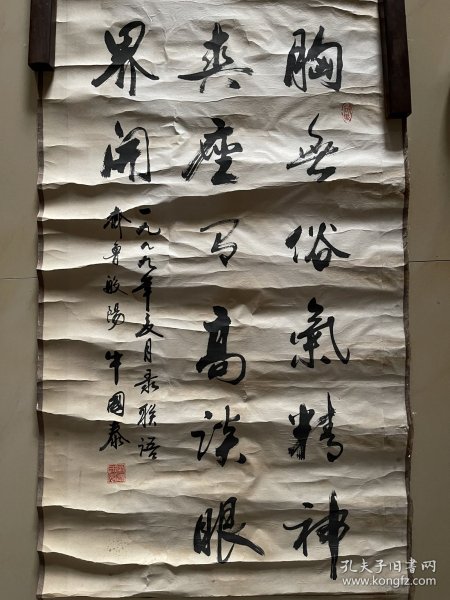 胸無俗氣精神
爽座有高談眼
界開
一九九九年夏月录联语
齐鲁般阳 牛國泰
孔夫子旧书网
www.kongfz.com